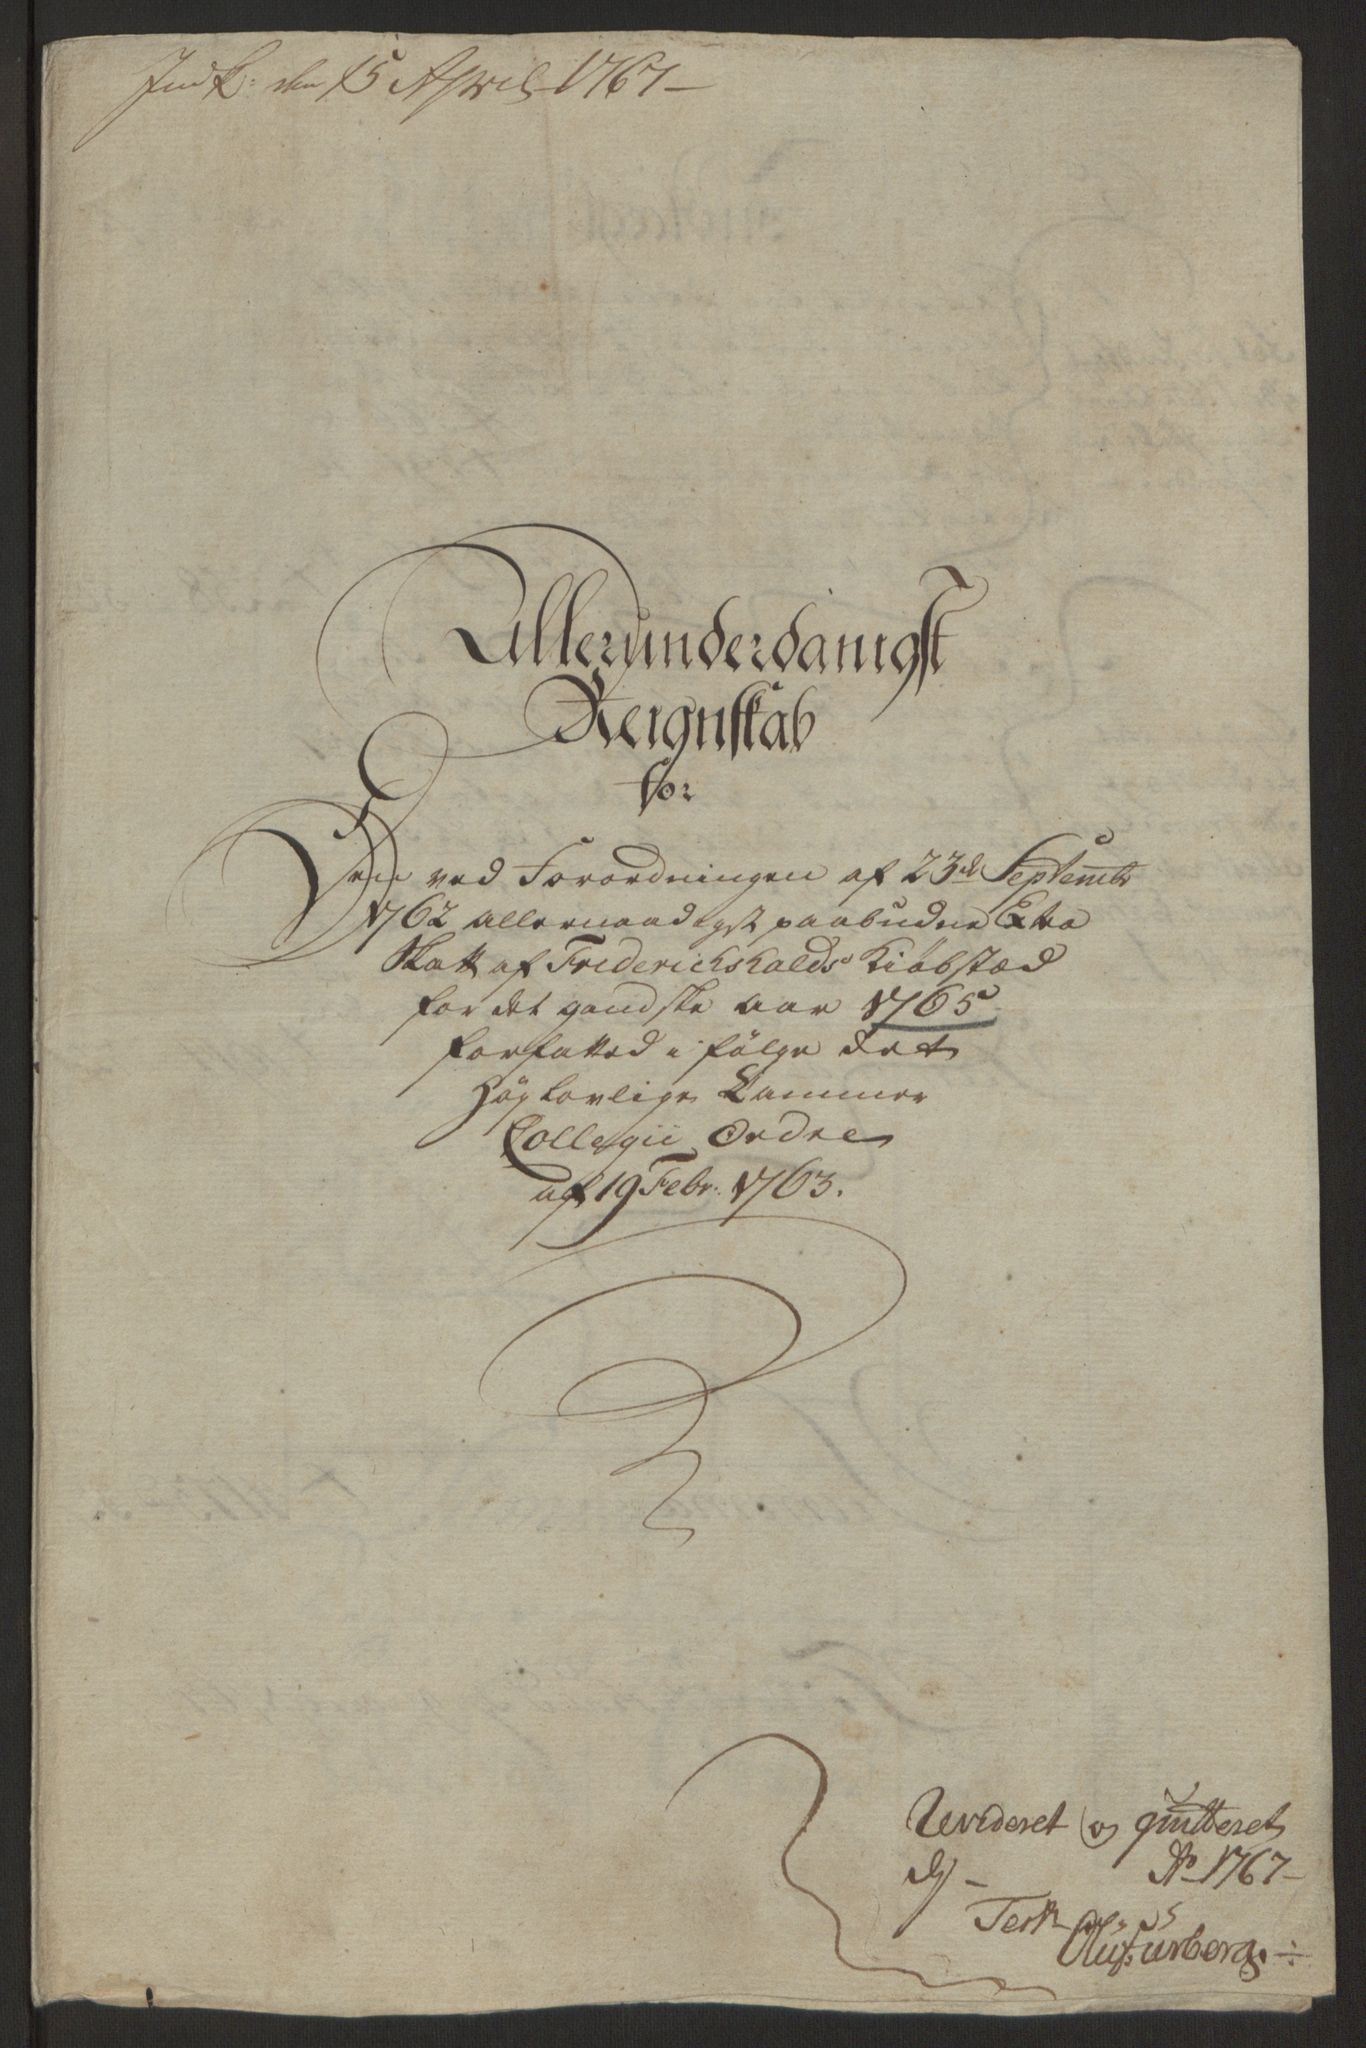 Indk: den 15 April 1767 –
Allerunderdanigst
Reignskab
for
Den ved Forordningen af 23de Septembr
1762 allernaadigst paabudne Extra
Skatt af Friderichshalds Kiöbstæd
for det gandske Aar 1765
forfatted i fölge det
Höylovlige Cammer
Collegii Ordre
af 19 Febr: 1763.
Revideret og quitteret
Ao 1767 –